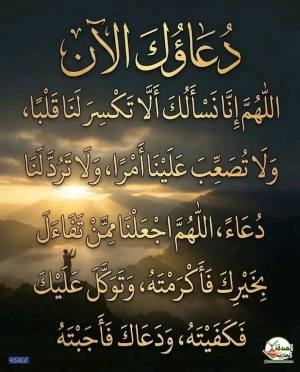 دُعَاؤُكَ الآن
اللَّهُمَّ إِنَّا نَسْأَلُكَ أَلَّا تَكْسِرَ لَنَا قَلْبًا،
وَلَا تُصَعِّبَ عَلَيْنَا أَمْرًا، وَلَا تَرُدَّ لَنَا
دُعَاءً، اللَّهُمَّ اجْعَلْنَا مِمَّنْ تَفَاءَلَ
بِخَيْرِكَ فَأَكْرَمْتَهُ، وَتَوَكَّلَ عَلَيْكَ
فَكَفَيْتَهُ، وَدَعَاكَ فَأَجَبْتَهُ
4SALE